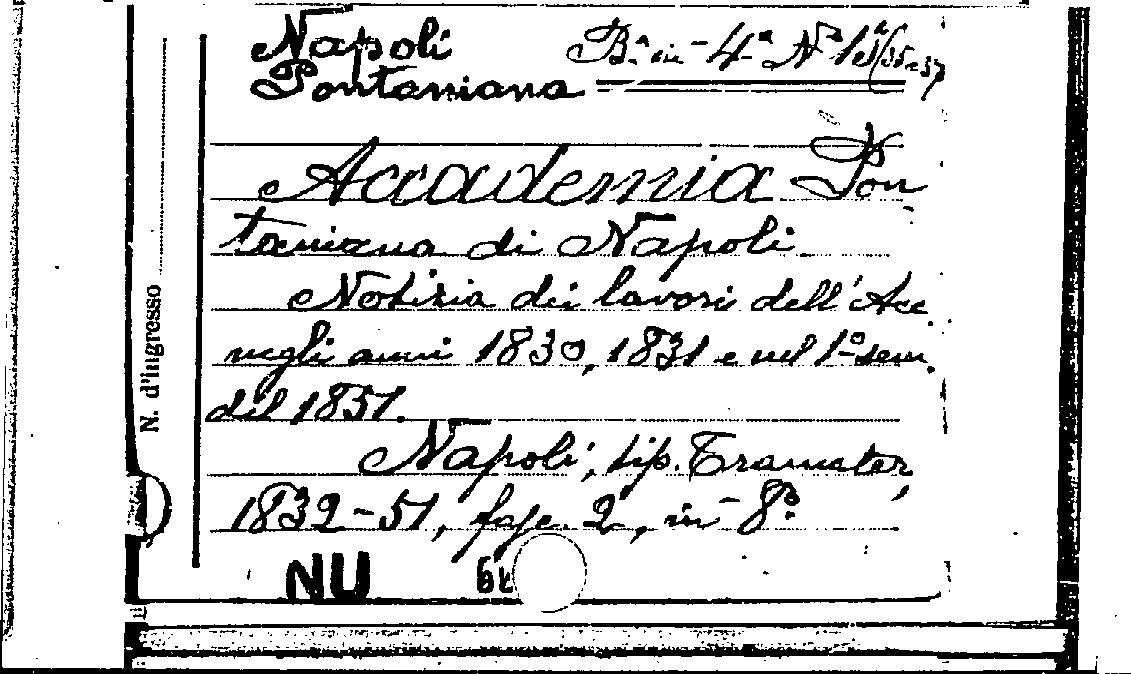 Napoli
Pontaniana
B.ª in-4ª Nº 15
Accademia Pon
taniana di Napoli
Notizia dei lavori dell'Acc.
negli anni 1830, 1831 e nel 1º sem.
del 1851.
Napoli, tip. Tramater,
1832-51, fasc. 2, in-8º.
N. d'ingresso
NU